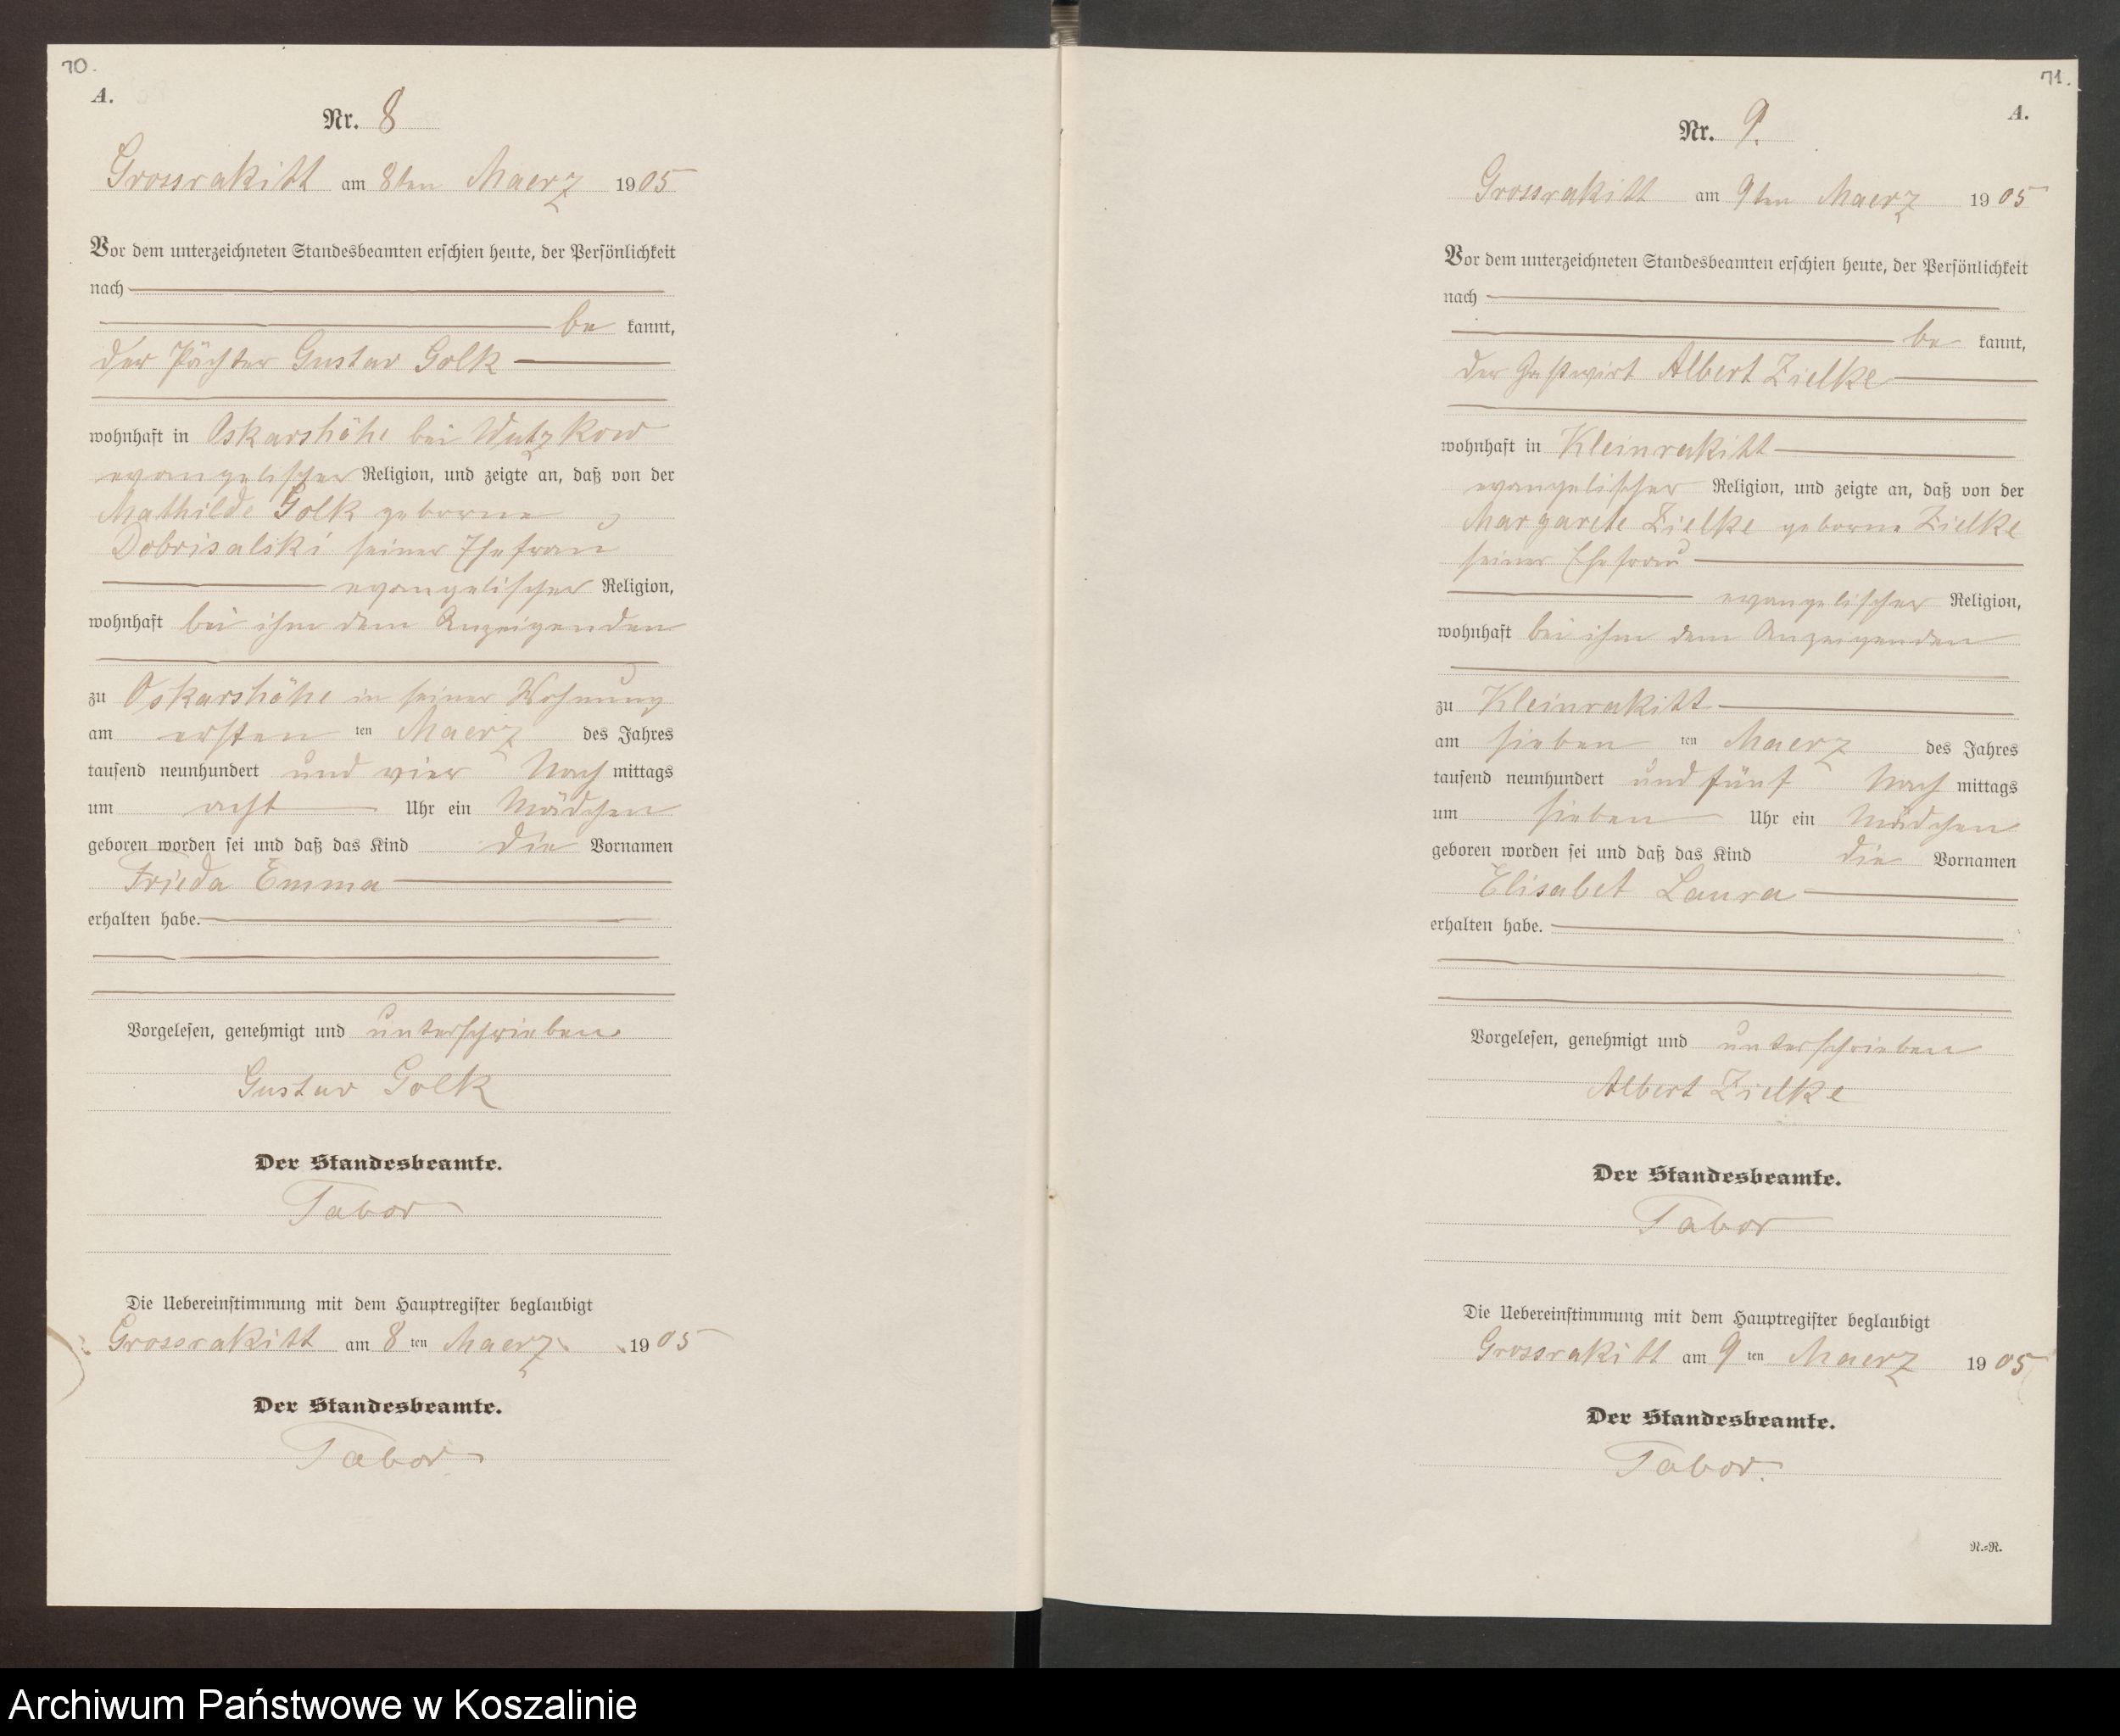 70.
A.
Nr. 8
Grossrakitt am 8ten Maerz 1905
Vor dem unterzeichneten Standesbeamten erschien heute, der Persönlichkeit
nach
be kannt,
der Pächter Gustav Golk
wohnhaft in Oskarshöhe bei Wutzkow
evangelischer Religion, und zeigte an, daß von der
Mathilde Golk geborne
Dobrisalski seiner Ehefrau
evangelischer Religion,
wohnhaft bei ihm dem Anzeigenden
zu Oskarshöhe in seiner Wohnung
am ersten ten Maerz des Jahres
tausend neunhundert und vier Nach mittags
um acht Uhr ein Mädchen
geboren worden sei und daß das Kind die Vornamen
Frieda Emma
erhalten habe.
Vorgelesen, genehmigt und unterschrieben
Gustav Golk
Der Standesbeamte.
Tabor
Die Uebereinstimmung mit dem Hauptregister beglaubigt
Grossrakitt am 8 ten Maerz 1905
Der Standesbeamte.
Tabor
71.
A.
Nr. 9.
Grossrakitt am 9ten Maerz 1905
Vor dem unterzeichneten Standesbeamten erschien heute, der Persönlichkeit
nach
be kannt,
der Gastwirt Albert Zielke
wohnhaft in Kleinrakitt
evangelischer Religion, und zeigte an, daß von der
Margarete Zielke geborne Zielke
seiner Ehefrau
evangelischer Religion,
wohnhaft bei ihm dem Anzeigenden
zu Kleinrakitt
am sieben ten Maerz des Jahres
tausend neunhundert und fünf Nach mittags
um sieben Uhr ein Mädchen
geboren worden sei und daß das Kind die Vornamen
Elisabet Laura
erhalten habe.
Vorgelesen, genehmigt und unterschrieben
Albert Zielke
Der Standesbeamte.
Tabor
Die Uebereinstimmung mit dem Hauptregister beglaubigt
Grossrakitt am 9 ten Maerz 1905
Der Standesbeamte.
Tabor.
N.=R.
Archiwum Państwowe w Koszalinie